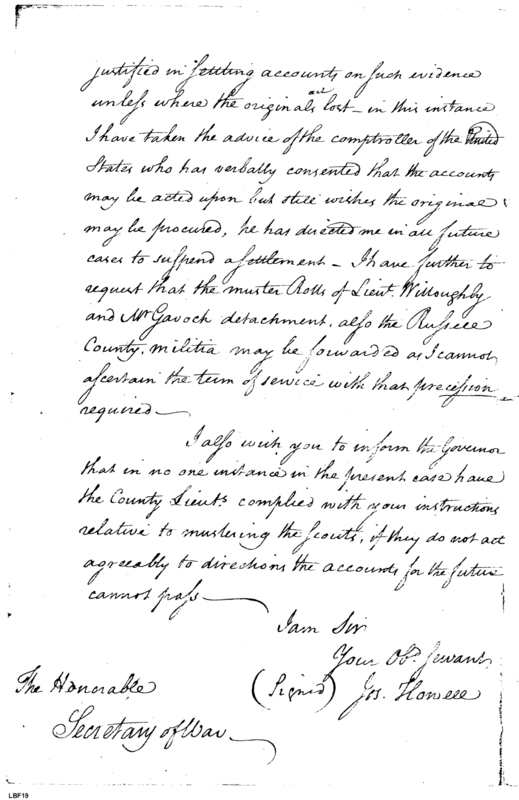 justified in settling accounts on such evidence
unless where the originals are lost – in this instance
I have taken the advice of the comptroller of the United
States who has verbally consented that the accounts
may be acted upon but still wishes the original
may be procured, he has directed me in all future
cases to suspend a settlement – I have further to
request that the muster Rolls of Lieut. Willoughby
and McGavock detachment, also the Russell
County militia may be forwarded as I cannot
ascertain the term of service with that precission
required –
I also wish you to inform the Governor
that in no one instance in the present case have
the County Lieuts. complied with your instructions
relative to mustering the Scouts, if they do not act
agreeably to directions the accounts for the future
cannot pass –
I am Sir
Your Obd. Servant,
(Signed) Jos. Howell
The Honorable
Secretary of War –
LBF19